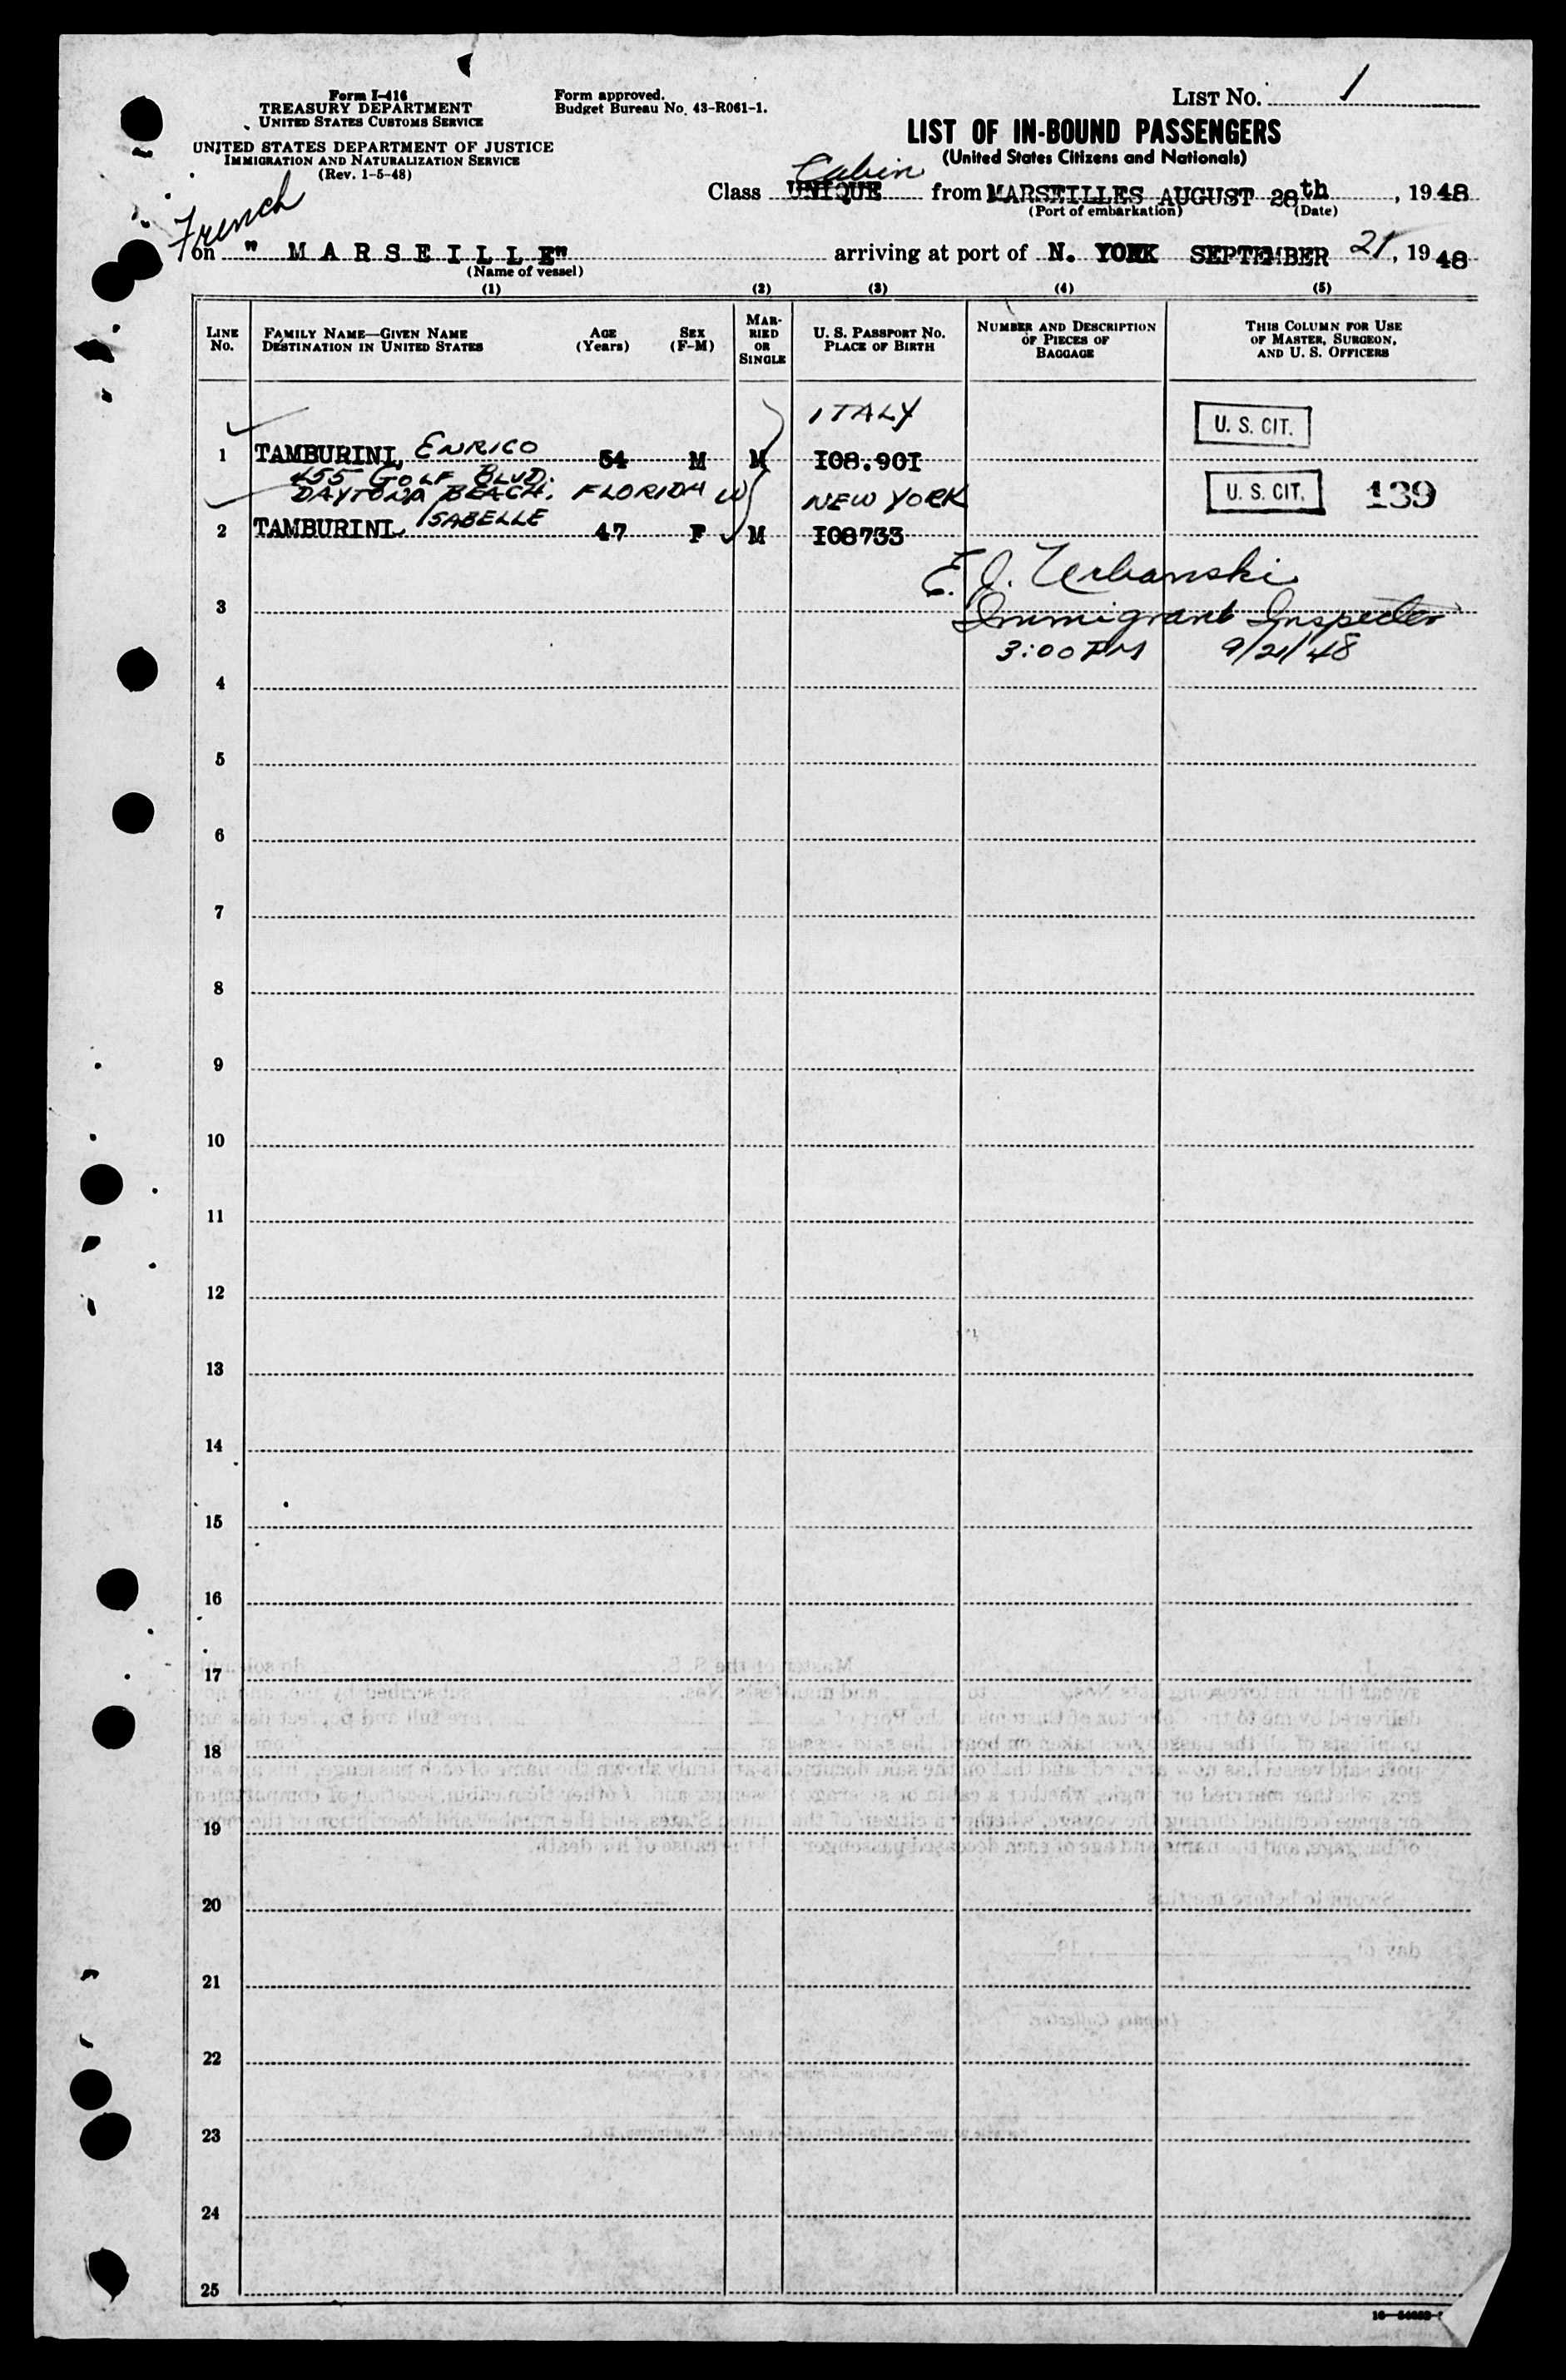 Form I-416
TREASURY DEPARTMENT
UNITED STATES CUSTOMS SERVICE
UNITED STATES DEPARTMENT OF JUSTICE
IMMIGRATION AND NATURALIZATION SERVICE
(Rev. 1-5-48)
Form approved.
Budget Bureau No. 43-R061-1.
LIST NO. 1
LIST OF IN-BOUND PASSENGERS
(United States Citizens and Nationals)
Cabin
Class UNIQUE from MARSEILLES AUGUST 28th, 1948
(Port of embarkation) (Date)
French
on "MARSEILLE" arriving at port of N. YORK SEPTEMBER 21, 1948
(Name of vessel)
(1) (2) (3) (4) (5)
LINE NO. FAMILY NAME—GIVEN NAME DESTINATION IN UNITED STATES AGE (Years) SEX (F-M) MARRIED OR SINGLE U. S. PASSPORT NO. PLACE OF BIRTH NUMBER AND DESCRIPTION OF PIECES OF BAGGAGE THIS COLUMN FOR USE OF MASTER, SURGEON, AND U. S. OFFICERS
ITALY U. S. CIT.
1 TAMBURINI, ENRICO 54 M M I08.90I
455 GOLF BLVD.
DAYTONA BEACH, FLORIDA W NEW YORK U. S. CIT. 139
2 TAMBURINI ISABELLE 47 F M I08733
E. J. Urbanski
3 Immigrant Inspector
3:00 PM 9/21/48
4
5
6
7
8
9
10
11
12
13
14
15
16
17
18
19
20
21
22
23
24
25